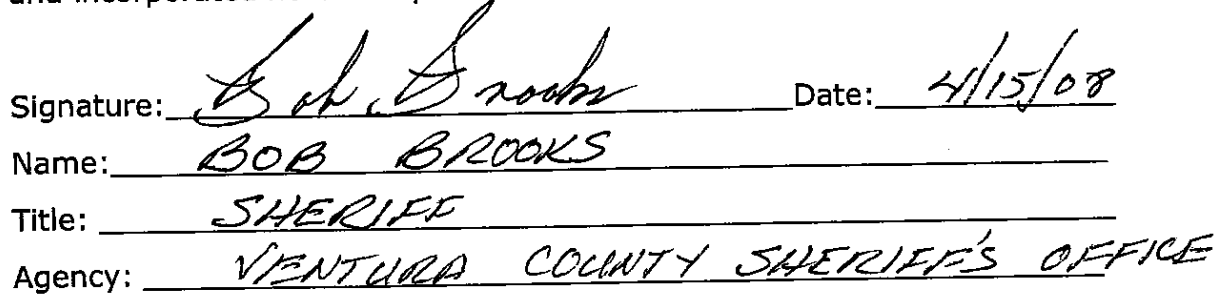 and incorporated
Signature: Bob Brooks Date: 4/15/08
Name: BOB BROOKS
Title: SHERIFF
Agency: VENTURA COUNTY SHERIFF'S OFFICE